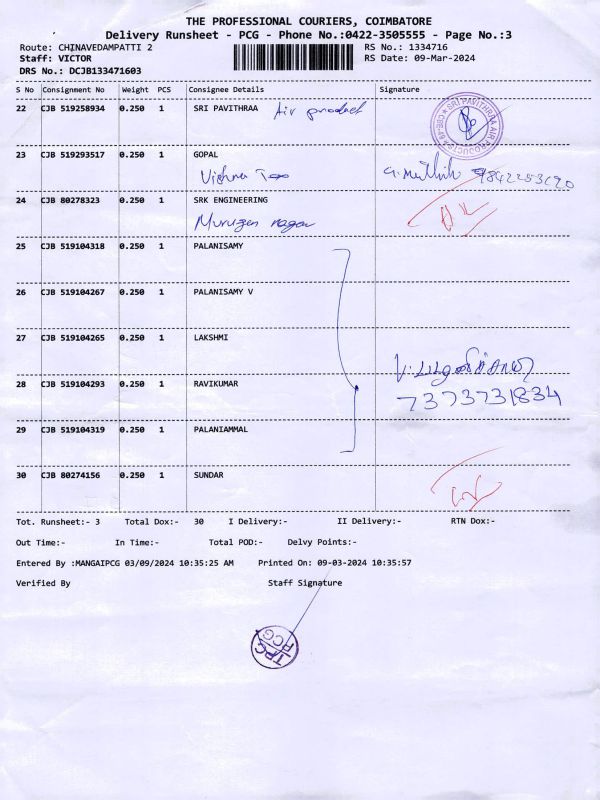 THE PROFESSIONAL COURIERS, COIMBATORE
Delivery Runsheet - PCG - Phone No.:0422-3505555 - Page No.:3
Route: CHINAVEDAMPATTI 2 RS No.: 1334716
Staff: VICTOR RS Date: 09-Mar-2024
DRS No.: DCJB133471603
S No Consignment No Weight PCS Consignee Details Signature
22 CJB 519258934 0.250 1 SRI PAVITHRAA Air product
SRI PAVITHRAA AIR PRODUCTS
23 CJB 519293517 0.250 1 GOPAL
24 CJB 80278323 0.250 1 SRK ENGINEERING
Murugan nagar
25 CJB 519104318 0.250 1 PALANISAMY
26 CJB 519104267 0.250 1 PALANISAMY V
27 CJB 519104265 0.250 1 LAKSHMI
28 CJB 519104293 0.250 1 RAVIKUMAR
7373731834
29 CJB 519104319 0.250 1 PALANIAMMAL
30 CJB 80274156 0.250 1 SUNDAR
Tot. Runsheet:- 3 Total Dox:- 30 I Delivery:- II Delivery:- RTN Dox:-
Out Time:- In Time:- Total POD:- Delvy Points:-
Entered By :MANGAIPCG 03/09/2024 10:35:25 AM Printed On: 09-03-2024 10:35:57
Verified By Staff Signature
TPC
PCG